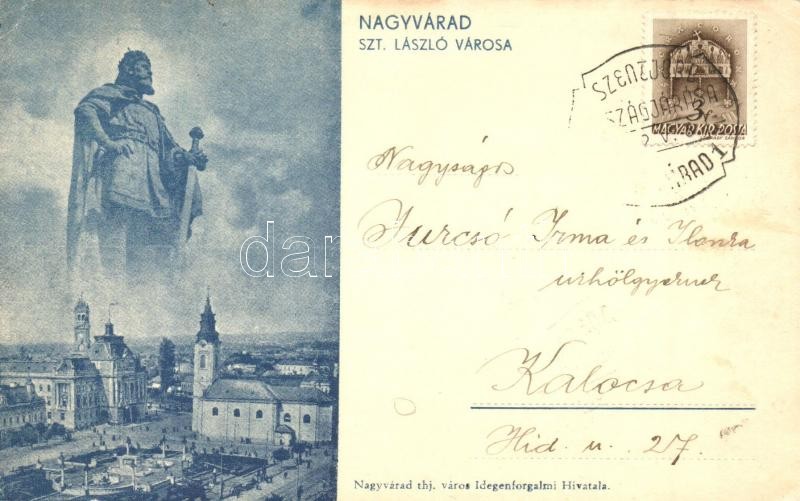 NAGYVÁRAD
SZT. LÁSZLÓ VÁROSA
MAGYAR KIR. POSTA
Nagyságos
Jurcsó Irma és Ilonka
urhölgyeknek
Kalocsa
Hid. u. 27.
Nagyvárad thj. város Idegenforgalmi Hivatala.